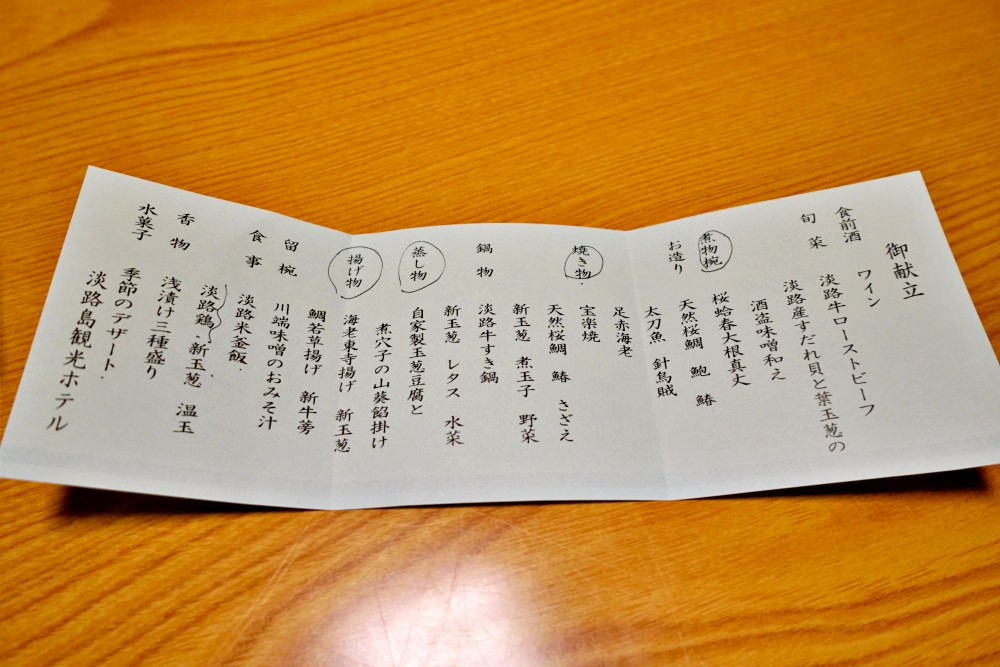 御献立
食前酒 ワイン
旬菜 淡路牛ローストビーフ
淡路産すだれ貝と葉玉葱の
酒盗味噌和え
煮物椀 桜蛤春大根真丈
お造り 天然桜鯛 鮑 鰆
太刀魚 針烏賊
足赤海老
焼き物 宝楽焼
天然桜鯛 鰆 さざえ
新玉葱 煮玉子 野菜
鍋物 淡路牛すき鍋
新玉葱 レタス 水菜
蒸し物 自家製玉葱豆腐と
煮穴子の山葵餡掛け
揚げ物 海老東寺揚げ 新玉葱
鯛若草揚げ 新牛蒡
留椀 川端味噌のおみそ汁
食事 淡路米釜飯
淡路鶏、新玉葱 温玉
香物 浅漬け三種盛り
水菓子 季節のデザート
淡路島観光ホテル